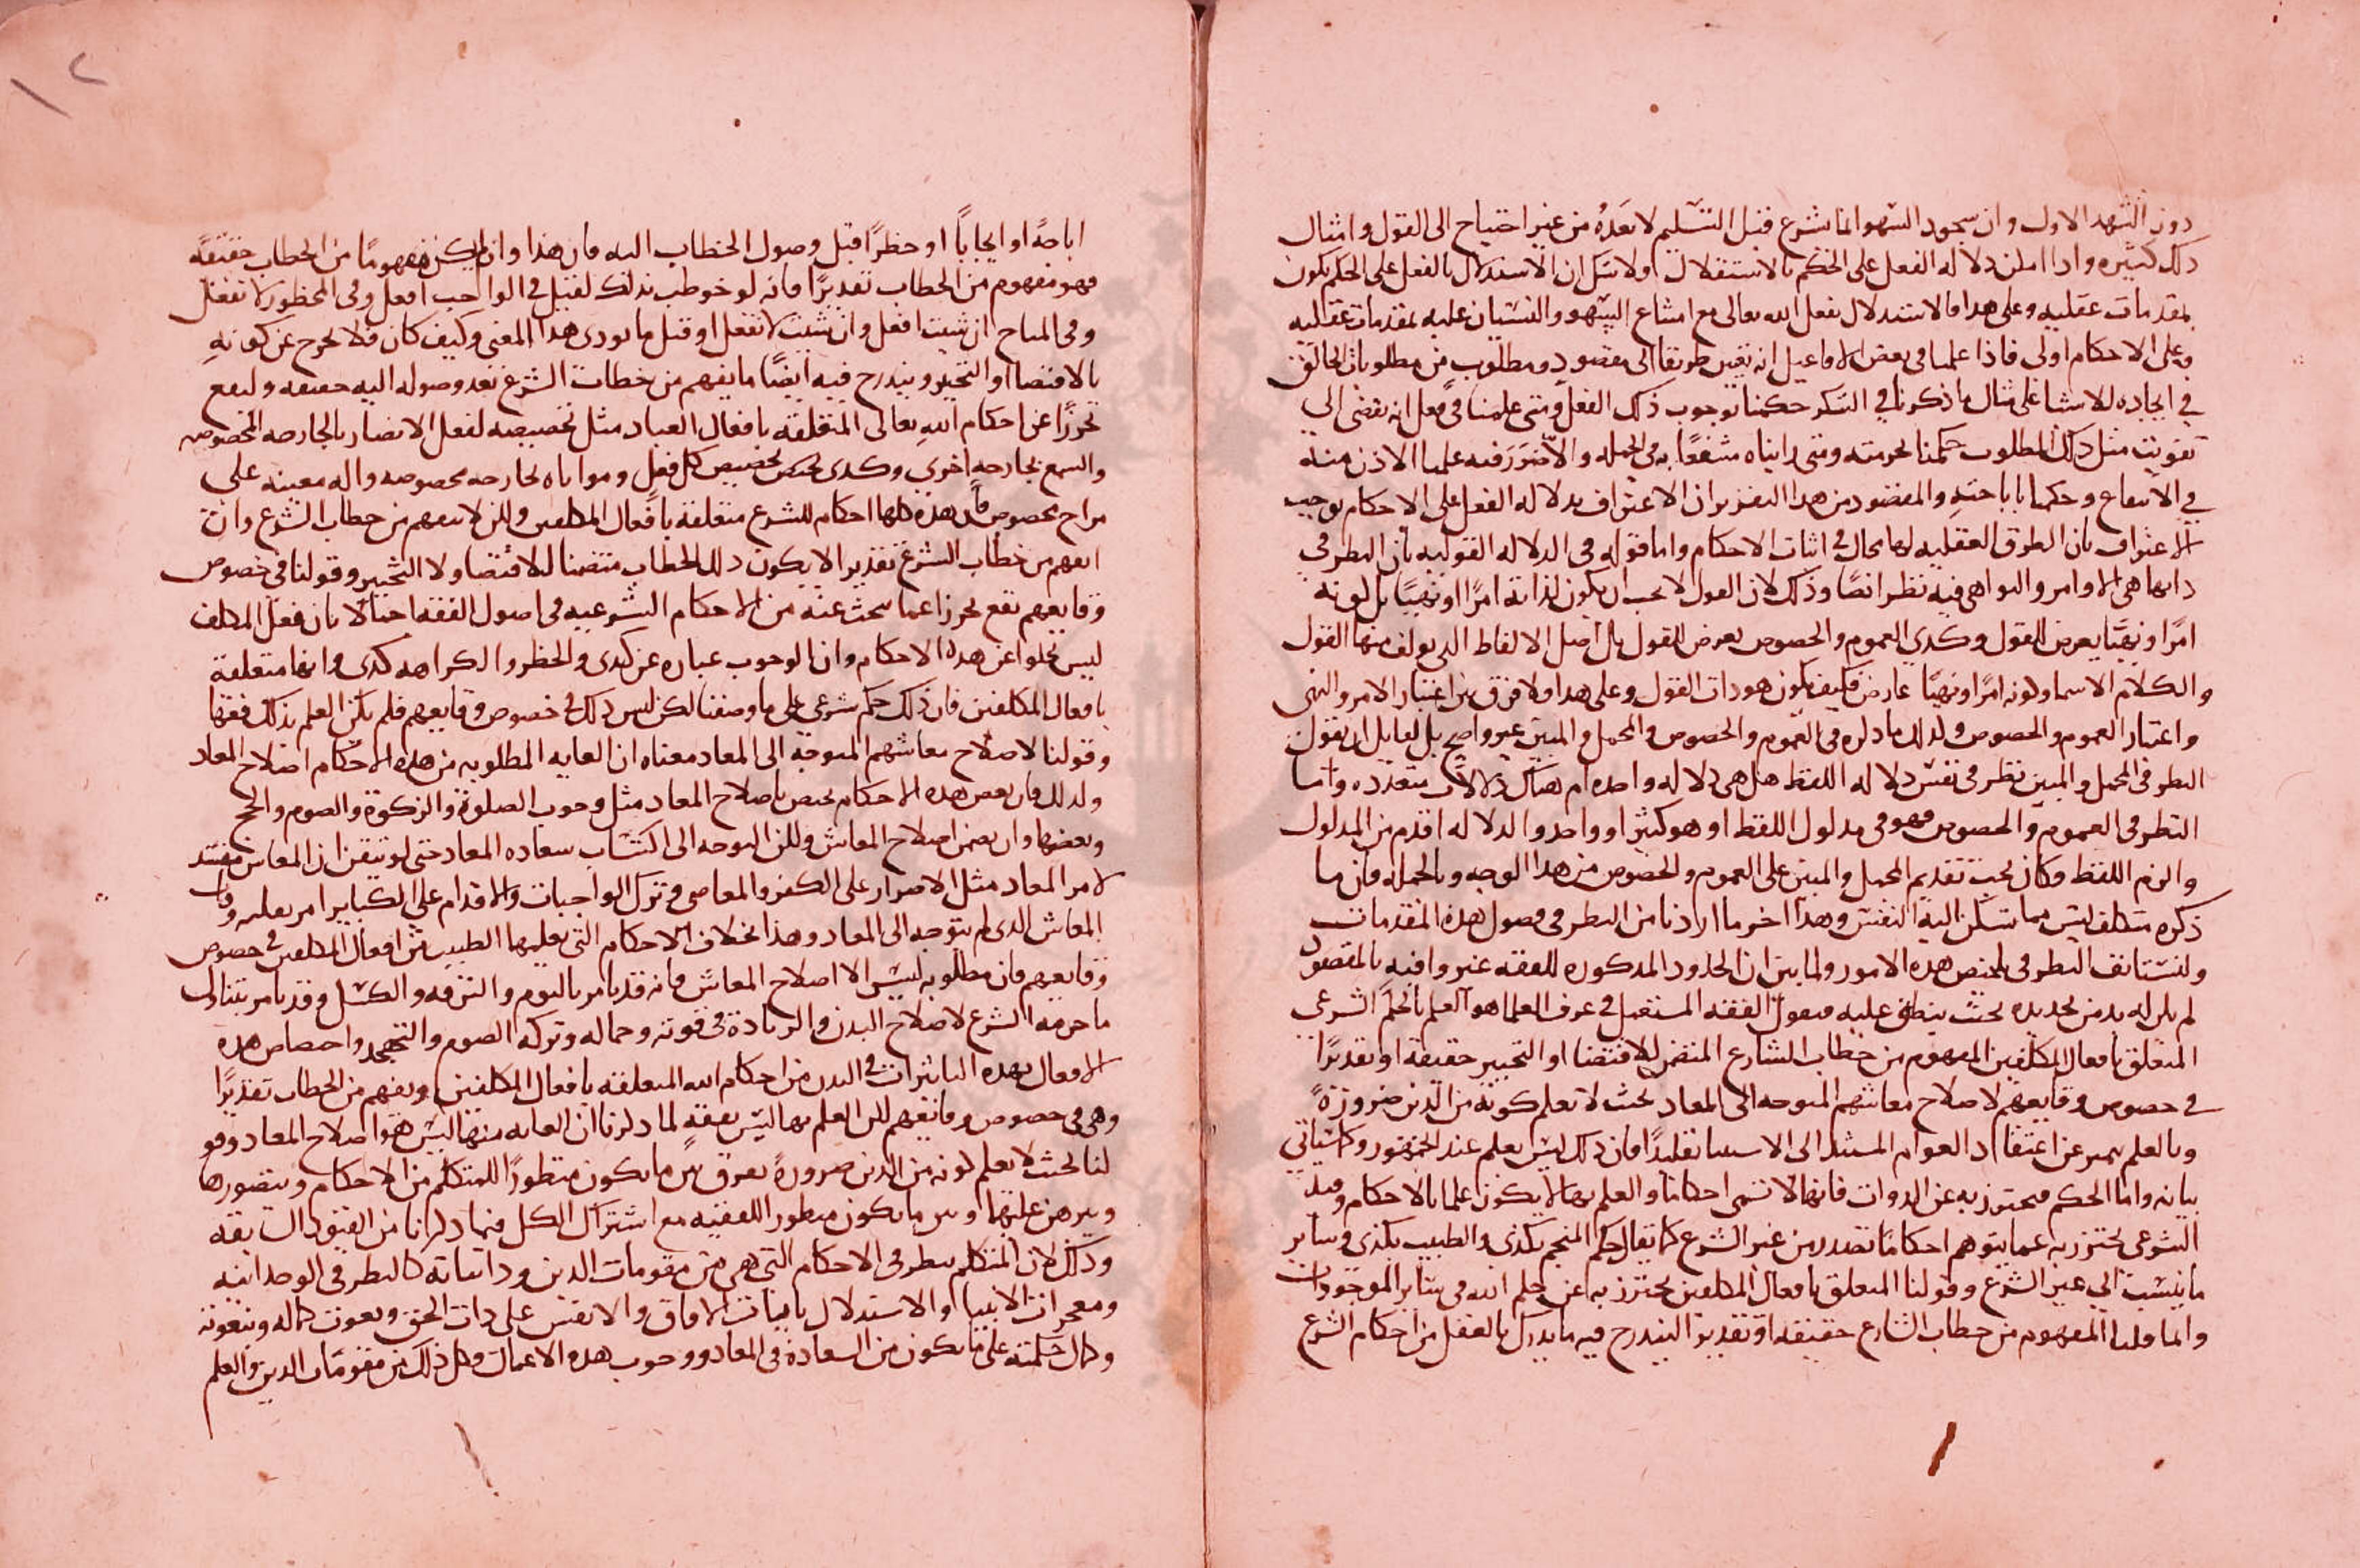 دون التشهد الاول وان سجود السهو انما شرع قبل التسليم لا بعده من غير احتياج الى القول وامثال
ذلك كثيره واذا امكن دلاله الفعل على الحكم بالاستقلال ولا شك ان الاستدلال بالفعل على الحكم يكون
بمقدمات عقليه وعلى هذا فالاستدلال بفعل الله تعالى مع امتناع السهو والنسيان عليه بمقدمات عقليه
على الاحكام اولى فاذا علمنا في بعض الافاعيل انه تعين طريقا الى مقصود ومطلوب من مطلوبات الخالق
في ايجاده للاشيا على مثال ما ذكرنا في الشكر حكمنا بوجوب ذلك الفعل ومتى علمنا في فعل انه يفضى الى
تفويت مثل ذلك المطلوب حكمنا بحرمته ومتى رايناه منتفعا به في الجمله ولا ضرر فيه علمنا الاذن منه
في الانتفاع وحكمنا باباحته والمقصود من هذا التقرير ان الاعتراف بدلاله الفعل على الاحكام يوجب
الاعتراف بان الطرق العقليه لها مجال في اثبات الاحكام واما قوله في الدلاله القوليه بان النظر في
ذاتها هي الاوامر والنواهي فيه نظر ايضا وذلك لان القول لا يجب ان يكون لذاته امرا او نهيا بل كونه
امرا ونهيا يعرض للقول وكذى العموم والخصوص يعرض للقول بل اصل الالفاظ الذي يولف منها القول
والكلام الاسما وكونه امرا ونهيا عارض فكيف يكون هو ذات القول وعلى هذا ولا فرق بين اعتبار الامر والنهي
واعتبار العموم والخصوص ولذلك ما ذكره في العموم والخصوص والمجمل والمبين غير واضح بل لقايل ان يقول
النظر في المجمل والمبين نظر في نفس دلاله اللفظ هل هي دلاله واحده ام هناك دلالات متعدده واما
النظر في العموم والخصوص فهو في مدلول اللفظ او هو كثير او واحد والدلاله اقدم من المدلول
والزم اللفظ فكان يجب تقديم المجمل والمبين على العموم والخصوص من هذا الوجه وبالجمله فان ما
ذكره متكلف ليس مما تسكن اليه النفس وهذا اخر ما اردنا من النظر في فصول هذه المقدمات
ولنستانف النظر في ملخص هذه الامور ولما تبين ان الحدود المذكوره للفقه غير وافيه بالمقصود
لم يكن له بد من تحديده بحيث ينطبق عليه فنقول الفقه المستعمل في عرف العلما هو العلم بالحكم الشرعي
المتعلق بافعال المكلفين المفهوم من خطاب الشارع المتضمن للاقتضا او التخيير حقيقه او تقديرا
في خصوص وقايعهم لاصلاح معاشهم المتوجه الى المعاد بحيث لا تعلم كونه من الدين ضرورة
وبالعلم يميز عن اعتقاد العوام المستند الى الاستنا تقليدا فان ذلك ليس بعلم عند الجمهور وكما سياتي
بيانه واما الحكم فيحترز به عن الذوات فانها لا تسمى احكاما والعلم بها لا يكون علما بالاحكام وقيد
الشرعي يحترز به عما يتوهم احكاما تصدر من غير الشرع كما يقال حكم المنجم بكذى والطبيب بكذى وساير
ما ينسب الى غير الشرع وقولنا المتعلق بافعال المكلفين يحترز به عن حكم الله في ساير الموجودات
وانما قلنا المفهوم من خطاب الشارع حقيقه او تقديرا ليندرج فيه ما يدرك بالعقل من احكام الشرع
اباحة او ايجابا او حظرا قبل وصول الخطاب اليه فان هذا وان لم يكن مفهوما من الخطاب حقيقة
فهو مفهوم من الخطاب تقديرا فانه لو خوطب بذلك لقيل في الواجب افعل وفي المحظور لا تفعل
وفي المباح ان شيت افعل وان شيت لا تفعل او قيل ما يودى هذا المعنى وكيف كان فلا يخرج عن كونه
بالاقتضا او التخيير ويندرج فيه ايضا ما يفهم من خطاب الشرع بعد وصوله اليه حقيقه وليقع
تحرزا عن احكام الله تعالى المتعلقه بافعال العباد مثل تخصيصه لفعل الابصار بالجارحه المخصوص
والسمع بجارحه اخرى وكذى يختص تخصيص كل فعل ومواتاه بجارحه مخصوصه واله معينه على
مزاج مخصوص فان هذه كلها احكام للشرع متعلقه بافعال المكلفين ولكن لا تفهم من خطاب الشرع وان
افهم من خطاب الشرع تقديرا لا يكون ذلك الخطاب متضمنا للاقتضا ولا التخيير وقولنا في خصوص
وقايعهم تقع تحرزا عما يبحث عنه من الاحكام الشرعيه في اصول الفقه اجمالا بان فعل المكلف
ليس يخلوا عن هذه الاحكام وان الوجوب عباره عن كذى والحظر والكراهه كذى وانها متعلقة
بافعال المكلفين فان ذلك حكم شرعي على ما وصفنا لكن ليس ذلك في خصوص وقايعهم فلم يكن العلم بذلك فقها
وقولنا لاصلاح معاشهم المتوجه الى المعاد معناه ان الغايه المطلوبه من هذه الاحكام اصلاح المعاد
ولذلك فان بعض هذه الاحكام يختص باصلاح المعاد مثل وجوب الصلوة والزكوة والصوم والحج
وبعضها وان يضمن اصلاح المعاش ولكن التوجه الى اكتساب سعاده المعاد حتى لو تيقن ان المعاش مفسد
لامر المعاد مثل الاصرار على الكفر والمعاصي وترك الواجبات والاقدام على الكباير امر بعلمه وفات
المعاش الذي لم يتوجه الى المعاد وهذا بخلاف الاحكام التي يعلمها الطبيب من افعال المكلفين في خصوص
وقايعهم فان مطلوبه ليس الا اصلاح المعاش فانه قد يامر بالنوم والترفه والكسل وقد يامر بتناول
ما حرمه الشرع لاصلاح البدن والزيادة في قوته وجماله وتركه الصوم والتهجد واختصاص هذه
الافعال بهذه التاثيرات في البدن من احكام الله المتعلقه بافعال المكلفين ويفهم من الخطاب تقديرا
وهي في خصوص وقايعهم لكن العلم بها ليس بفقه لما ذكرنا ان الغايه منها ليس هو اصلاح المعاد وقو
لنا بحيث لا يعلم كونه من الدين ضرورة يفرق بين ما يكون منظورا للمتكلم من الاحكام ويتصورها
ويبرهن عليها وبين ما يكون منظورا للفقيه مع اشتراك الكل فيما ذكرنا من القيود السابقه
وذلك لان المتكلم ينظر في الاحكام التي هي من مقومات الدين وذاتياته كالنظر في الوحدانيه
ومعجزات الانبيا والاستدلال بايات الافاق والانفس على ذات الحق ونعوت كماله وتنعوته
وكمال حكمته على ما يكون من السعادة في المعاد ووجوب هذه الاعمال وكل ذلك من مقومات الدين والعلم